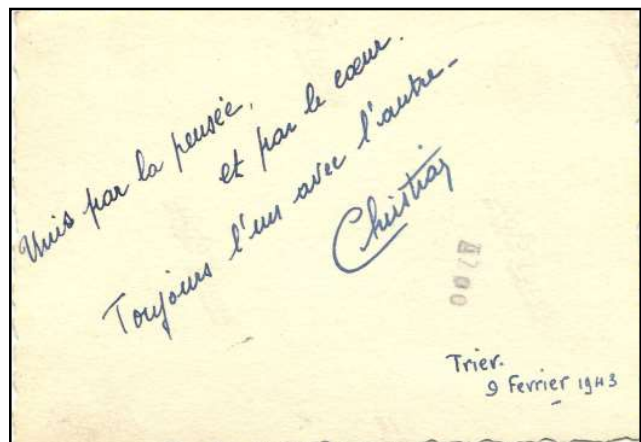 Unis par la pensée,
et par le cœur.
Toujours l'un avec l'autre -
Christian
Trier.
9 Fevrier 1943